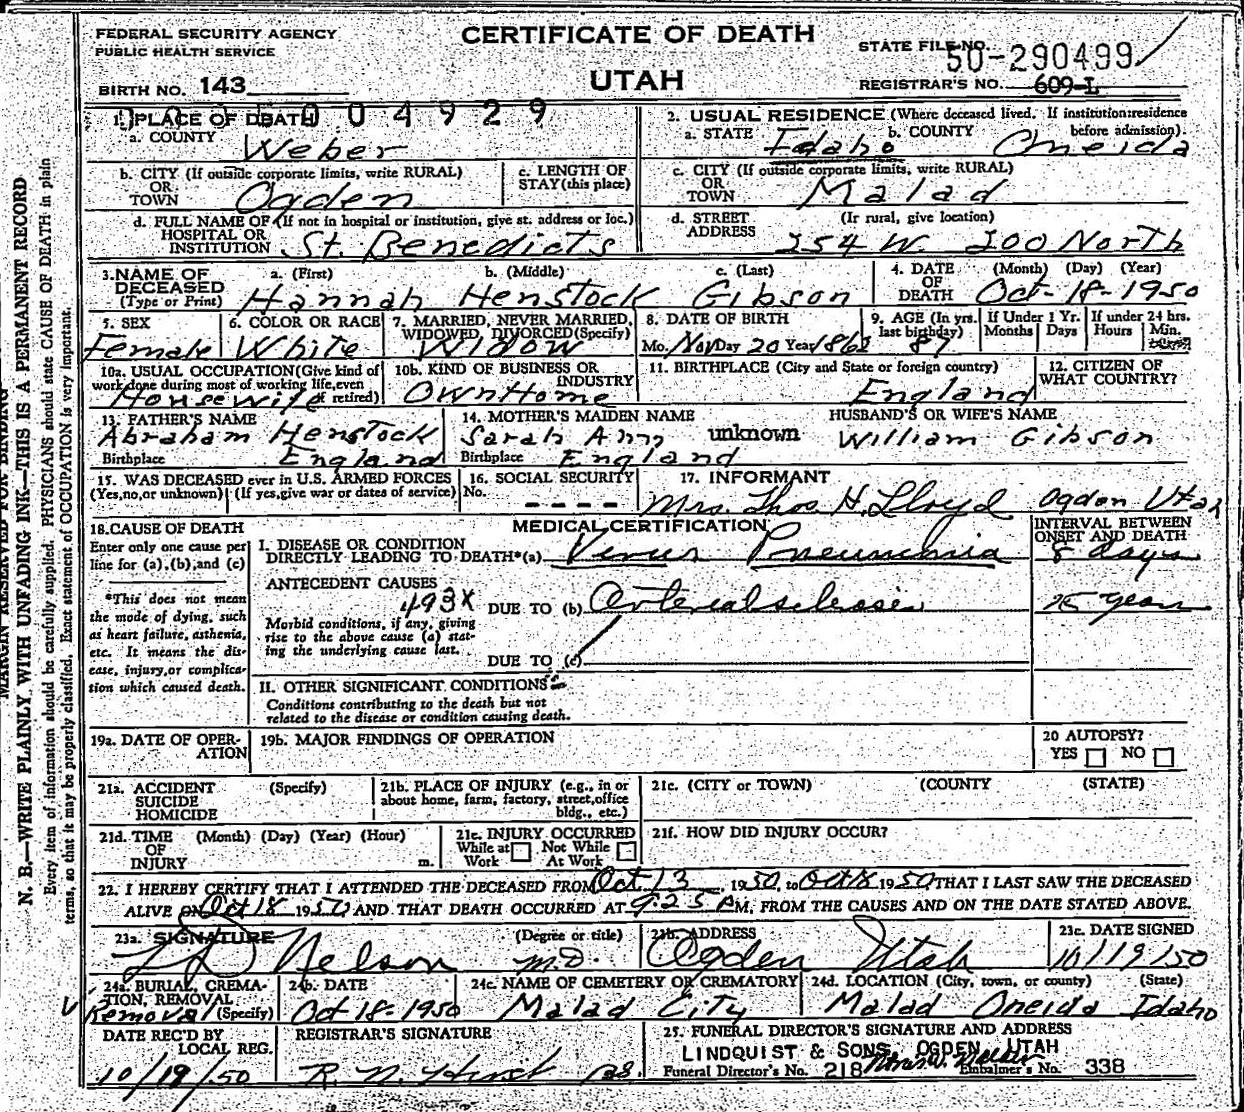 FEDERAL SECURITY AGENCY
PUBLIC HEALTH SERVICE
BIRTH NO. 143
CERTIFICATE OF DEATH
UTAH
STATE FILE NO. 50-290499
REGISTRAR'S NO. 609-L
004929
1. PLACE OF DEATH
a. COUNTY Weber
2. USUAL RESIDENCE (Where deceased lived. If institution:residence before admission).
a. STATE Idaho b. COUNTY Oneida
b. CITY (If outside corporate limits, write RURAL) OR TOWN Ogden
c. LENGTH OF STAY (this place)
c. CITY (If outside corporate limits, write RURAL) OR TOWN Malad
d. FULL NAME OF (If not in hospital or institution, give st. address or loc.) HOSPITAL OR INSTITUTION St. Benedicts
d. STREET ADDRESS (If rural, give location) 254 W 200 North
3. NAME OF DECEASED (Type or Print)
a. (First) b. (Middle) c. (Last)
Hannah Henstock Gibson
4. DATE OF DEATH (Month) (Day) (Year) Oct-18-1950
5. SEX Female
6. COLOR OR RACE White
7. MARRIED, NEVER MARRIED, WIDOWED, DIVORCED (Specify) Widow
8. DATE OF BIRTH Mo. Nov Day 20 Year 1862
9. AGE (In yrs. last birthday) 87
If Under 1 Yr. Months Days
If under 24 hrs. Hours Min.
10a. USUAL OCCUPATION (Give kind of work done during most of working life, even if retired) Housewife
10b. KIND OF BUSINESS OR INDUSTRY Own Home
11. BIRTHPLACE (City and State or foreign country) England
12. CITIZEN OF WHAT COUNTRY?
13. FATHER'S NAME Abraham Henstock
Birthplace England
14. MOTHER'S MAIDEN NAME Sarah Ann unknown
Birthplace England
HUSBAND'S OR WIFE'S NAME William Gibson
15. WAS DECEASED ever in U.S. ARMED FORCES (Yes, no, or unknown) (If yes, give war or dates of service)
16. SOCIAL SECURITY No. ----
17. INFORMANT Mrs. Thos H. Lloyd Ogden Utah
18. CAUSE OF DEATH
Enter only one cause per line for (a), (b), and (c)
*This does not mean the mode of dying, such as heart failure, asthenia, etc. It means the disease, injury, or complication which caused death.
MEDICAL CERTIFICATION
INTERVAL BETWEEN ONSET AND DEATH
I. DISEASE OR CONDITION DIRECTLY LEADING TO DEATH*(a) Virus Pneumonia 8 days
ANTECEDENT CAUSES
493X
DUE TO (b) Arterialsclerosis years
Morbid conditions, if any, giving rise to the above cause (a) stating the underlying cause last.
DUE TO (c)
II. OTHER SIGNIFICANT CONDITIONS
Conditions contributing to the death but not related to the disease or condition causing death.
19a. DATE OF OPERATION
19b. MAJOR FINDINGS OF OPERATION
20 AUTOPSY? YES NO
21a. ACCIDENT SUICIDE HOMICIDE (Specify)
21b. PLACE OF INJURY (e.g., in or about home, farm, factory, street, office bldg., etc.)
21c. (CITY or TOWN) (COUNTY) (STATE)
21d. TIME OF INJURY (Month) (Day) (Year) (Hour) m.
21e. INJURY OCCURRED While at Work Not While At Work
21f. HOW DID INJURY OCCUR?
22. I HEREBY CERTIFY THAT I ATTENDED THE DECEASED FROM Oct 13, 1950, to Oct 18 1950 THAT I LAST SAW THE DECEASED
ALIVE ON Oct 18 1950 AND THAT DEATH OCCURRED AT 9:25 PM, FROM THE CAUSES AND ON THE DATE STATED ABOVE.
23a. SIGNATURE (Degree or title) Nelson M.D.
23b. ADDRESS Ogden Utah
23c. DATE SIGNED 10/19/50
24a. BURIAL, CREMATION, REMOVAL (Specify) Removal
24b. DATE Oct-18-1950
24c. NAME OF CEMETERY OR CREMATORY Malad City
24d. LOCATION (City, town, or county) (State) Malad Oneida Idaho
DATE REC'D BY LOCAL REG. 10/19/50
REGISTRAR'S SIGNATURE
25. FUNERAL DIRECTOR'S SIGNATURE AND ADDRESS
LINDQUIST & SONS OGDEN, UTAH
Funeral Director's No. 218 Embalmer's No. 338
MARGIN RESERVED FOR BINDING
N. B.—WRITE PLAINLY WITH UNFADING INK—THIS IS A PERMANENT RECORD
Every item of information should be carefully supplied. PHYSICIANS should state CAUSE OF DEATH in plain
terms, so that it may be properly classified. Exact statement of OCCUPATION is very important.